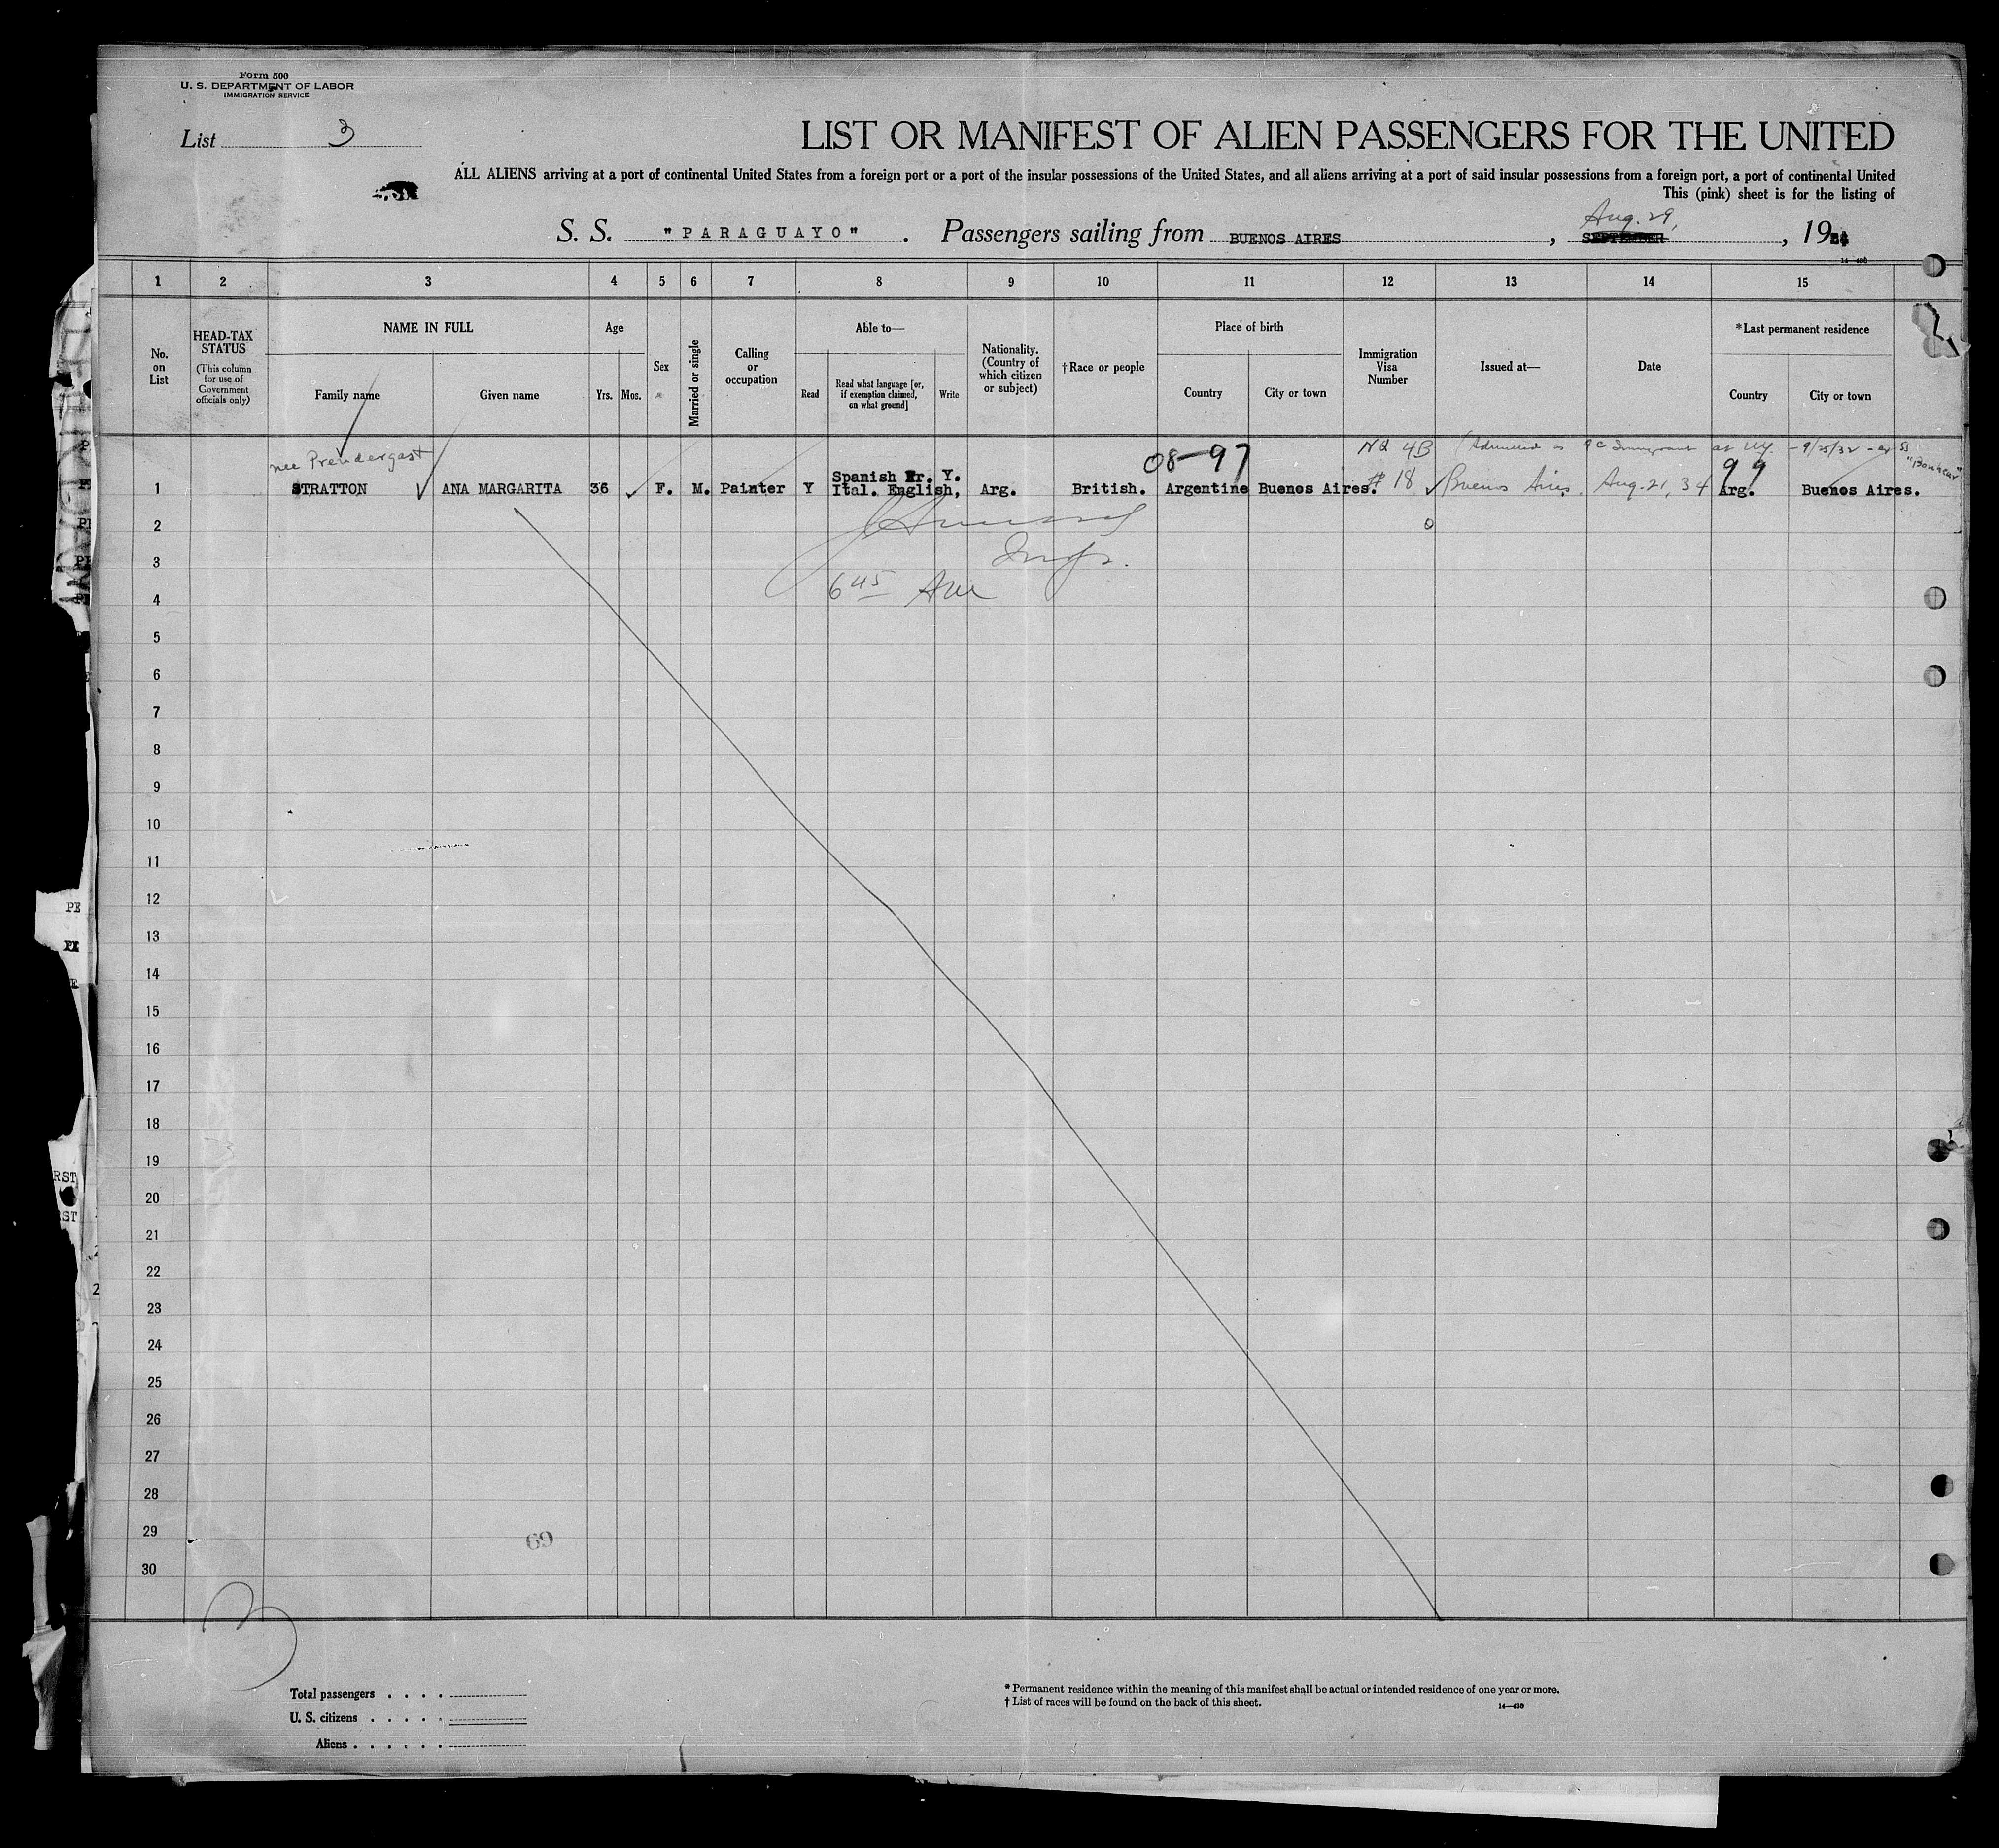 Form 500
U. S. DEPARTMENT OF LABOR
IMMIGRATION SERVICE
List 3
LIST OR MANIFEST OF ALIEN PASSENGERS FOR THE UNITED
ALL ALIENS arriving at a port of continental United States from a foreign port or a port of the insular possessions of the United States, and all aliens arriving at a port of said insular possessions from a foreign port, a port of continental United
This (pink) sheet is for the listing of
Aug. 29,
S. S. "PARAGUAYO" . Passengers sailing from BUENOS AIRES , SEPTEMBER , 1934
14—430
1 2 3 4 5 6 7 8 9 10 11 12 13 14 15
No. on List
HEAD-TAX STATUS
(This column for use of Government officials only)
NAME IN FULL
Family name
Given name
Age
Yrs.
Mos.
Sex
Married or single
Calling or occupation
Able to—
Read
Read what language [or, if exemption claimed, on what ground]
Write
Nationality. (Country of which citizen or subject)
†Race or people
Place of birth
Country
City or town
Immigration Visa Number
Issued at—
Date
*Last permanent residence
Country
City or town
nee Prendergast
08-97
NQ 4B (Admitted as Immigrant at NY. - 9/25/32 - ex SS
99
1 STRATTON ANA MARGARITA 36 F. M. Painter Y Spanish Fr. Y. Ital. English, Arg. British. Argentine Buenos Aires. # 18 Buenos Aires. Aug. 21, 34 Arg. Buenos Aires.
2
3
4
645 AM
5
6
7
8
9
10
11
12
13
14
15
16
17
18
19
20
21
22
23
24
25
26
27
28
29
69
30
3
Total passengers . . . .
U. S. citizens . . . . .
Aliens . . . . . .
* Permanent residence within the meaning of this manifest shall be actual or intended residence of one year or more.
† List of races will be found on the back of this sheet.
14—430
PE
RST